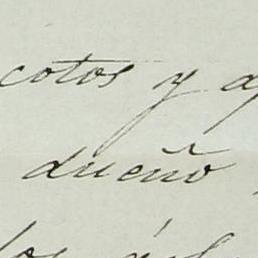 cotos y
dueño
los